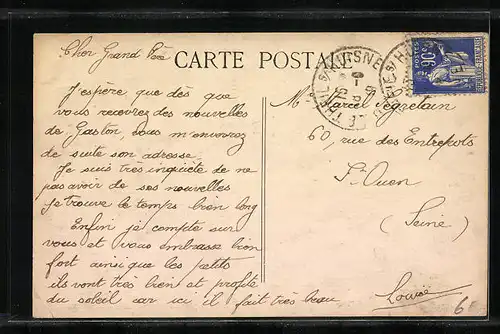 Cher Grand Père
CARTE POSTALE
J'espère que dès que
vous recevrez des nouvelles
de Gaston, vous m'enverrez
de suite son adresse.
Je suis très inquiète de ne
pas avoir de ses nouvelles
je trouve le temps bien long
Enfin je compte sur
vous et vous embrasse bien
fort ainsi que les petits
ils vont très bien et profite
du soleil car ici il fait très beau
Louise
M. Marcel Segretain
60, rue des Entrepots
St Ouen
(Seine)
POSTES
90c
6